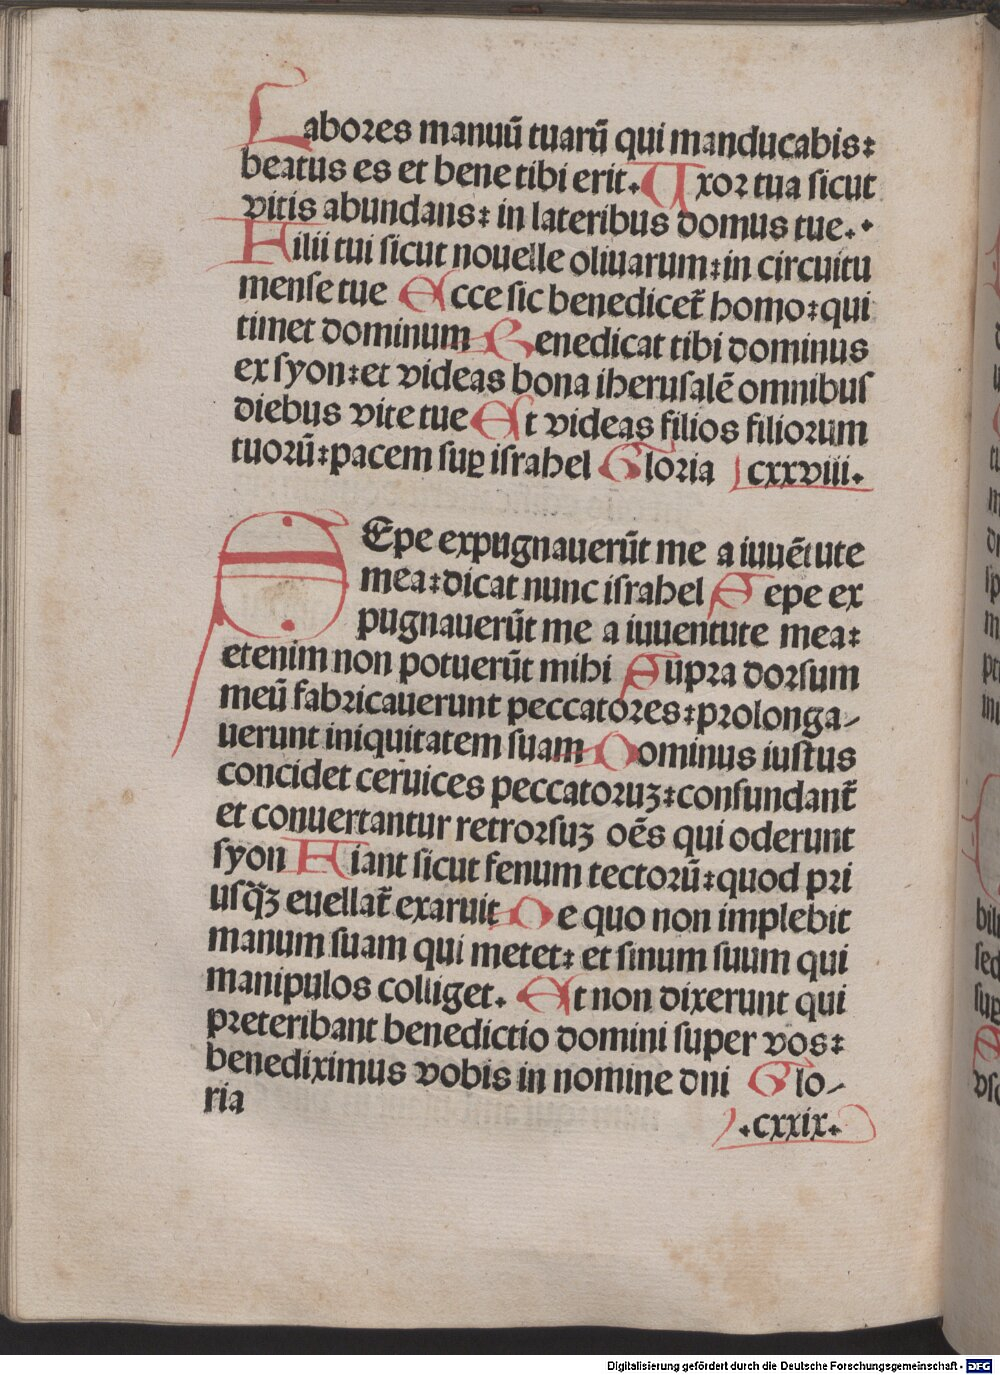 Labores manuū tuarū qui manducabis:
beatus es et bene tibi erit. Uxor tua sicut
vitis abundans: in lateribus domus tue.
Filii tui sicut nouelle oliuarum: in circuitu
mense tue Ecce sic benedicet̄ homo: qui
timet dominum Benedicat tibi dominus
ex syon: et videas bona iherusalē omnibus
diebus vite tue Et videas filios filiorum
tuorū: pacem suꝑ israhel Gloria cxxviii.
SEpe expugnauerūt me a iuuētute
mea: dicat nunc israhel Sepe ex
pugnauerūt me a iuuentute mea:
etenim non potuerūt mihi Supra dorsum
meū fabricauerunt peccatores: prolonga-
uerunt iniquitatem suam Dominus iustus
concidet ceruices peccatoruꝫ: confundant̄
et conuertantur retrorsuꝫ oēs qui oderunt
syon Fiant sicut fenum tectorū: quod pri
usq̄ꝫ euellat̄ exaruit De quo non implebit
manum suam qui metet: et sinum suum qui
manipulos colliget. Et non dixerunt qui
preteribant benedictio domini super vos:
benediximus vobis in nomine dni Glo-
ria .cxxix.
Digitalisierung gefördert durch die Deutsche Forschungsgemeinschaft - DFG